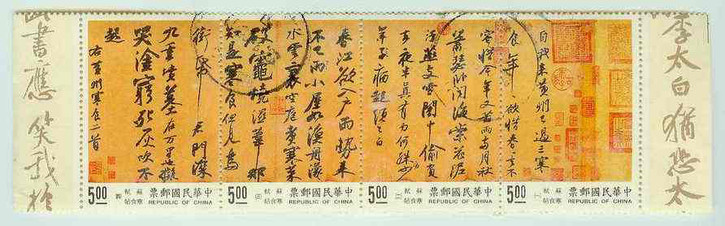 李太白猶恐太
自我來黃州已過三寒
食年々欲惜春々去不
容惜今年又苦雨兩月秋
蕭瑟臥聞海棠花泥
汙燕支雪闇中偷負
去夜半真有力何殊少
年子病起頭已白
春江欲入戶雨勢來
不已雨小屋如漁舟濛々
水雲裏空庖煮寒菜
破竈燒濕葦那
知是寒食但見烏
銜帋君門深
九重墳墓在万里也擬
哭塗窮死灰吹不
起
右黃州寒食二首
書應笑我於
中華民國郵票
REPUBLIC OF CHINA
蘇軾寒食帖
(一)
5.00
中華民國郵票
REPUBLIC OF CHINA
蘇軾寒食帖
(二)
5.00
中華民國郵票
REPUBLIC OF CHINA
蘇軾寒食帖
(三)
5.00
中華民國郵票
REPUBLIC OF CHINA
蘇軾寒食帖
(四)
5.00